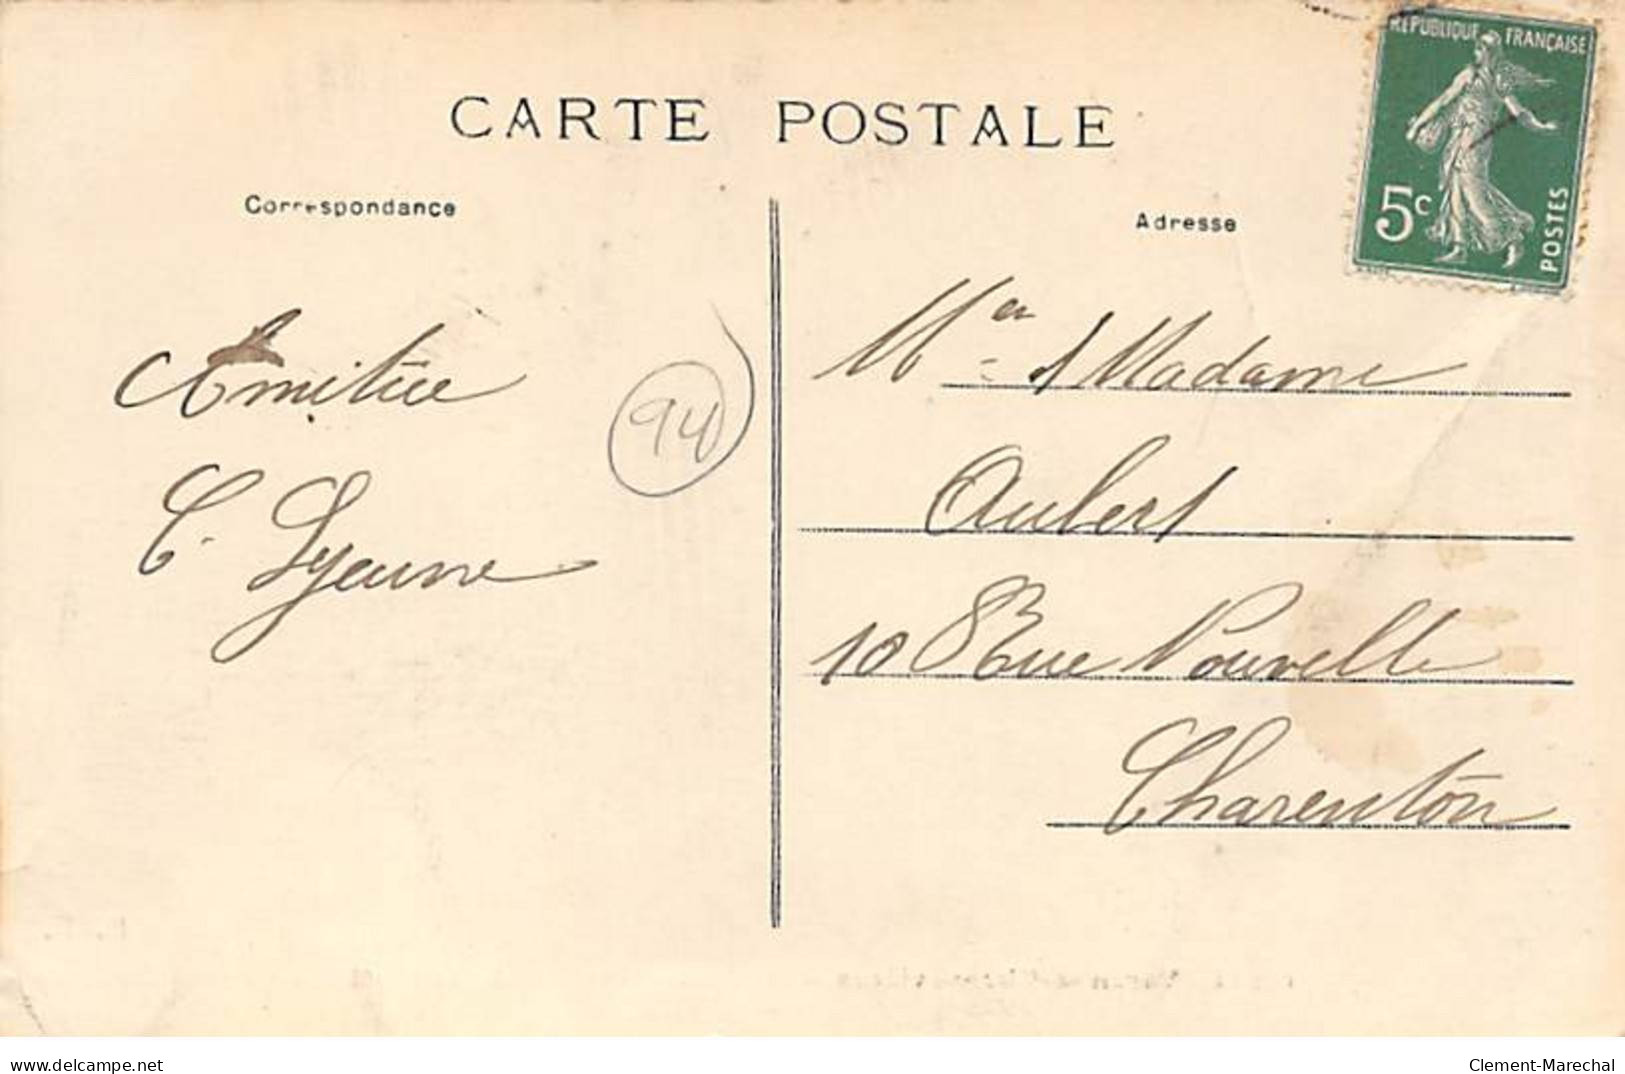 CARTE POSTALE
RÉPUBLIQUE FRANÇAISE
5c
POSTES
Correspondance
Adresse
Amitiée
C. Lyeune
94
Mer & Madame
Aubert
10 Rue Nouvelle
Charenton
delcampe.net
Clement-Marechal